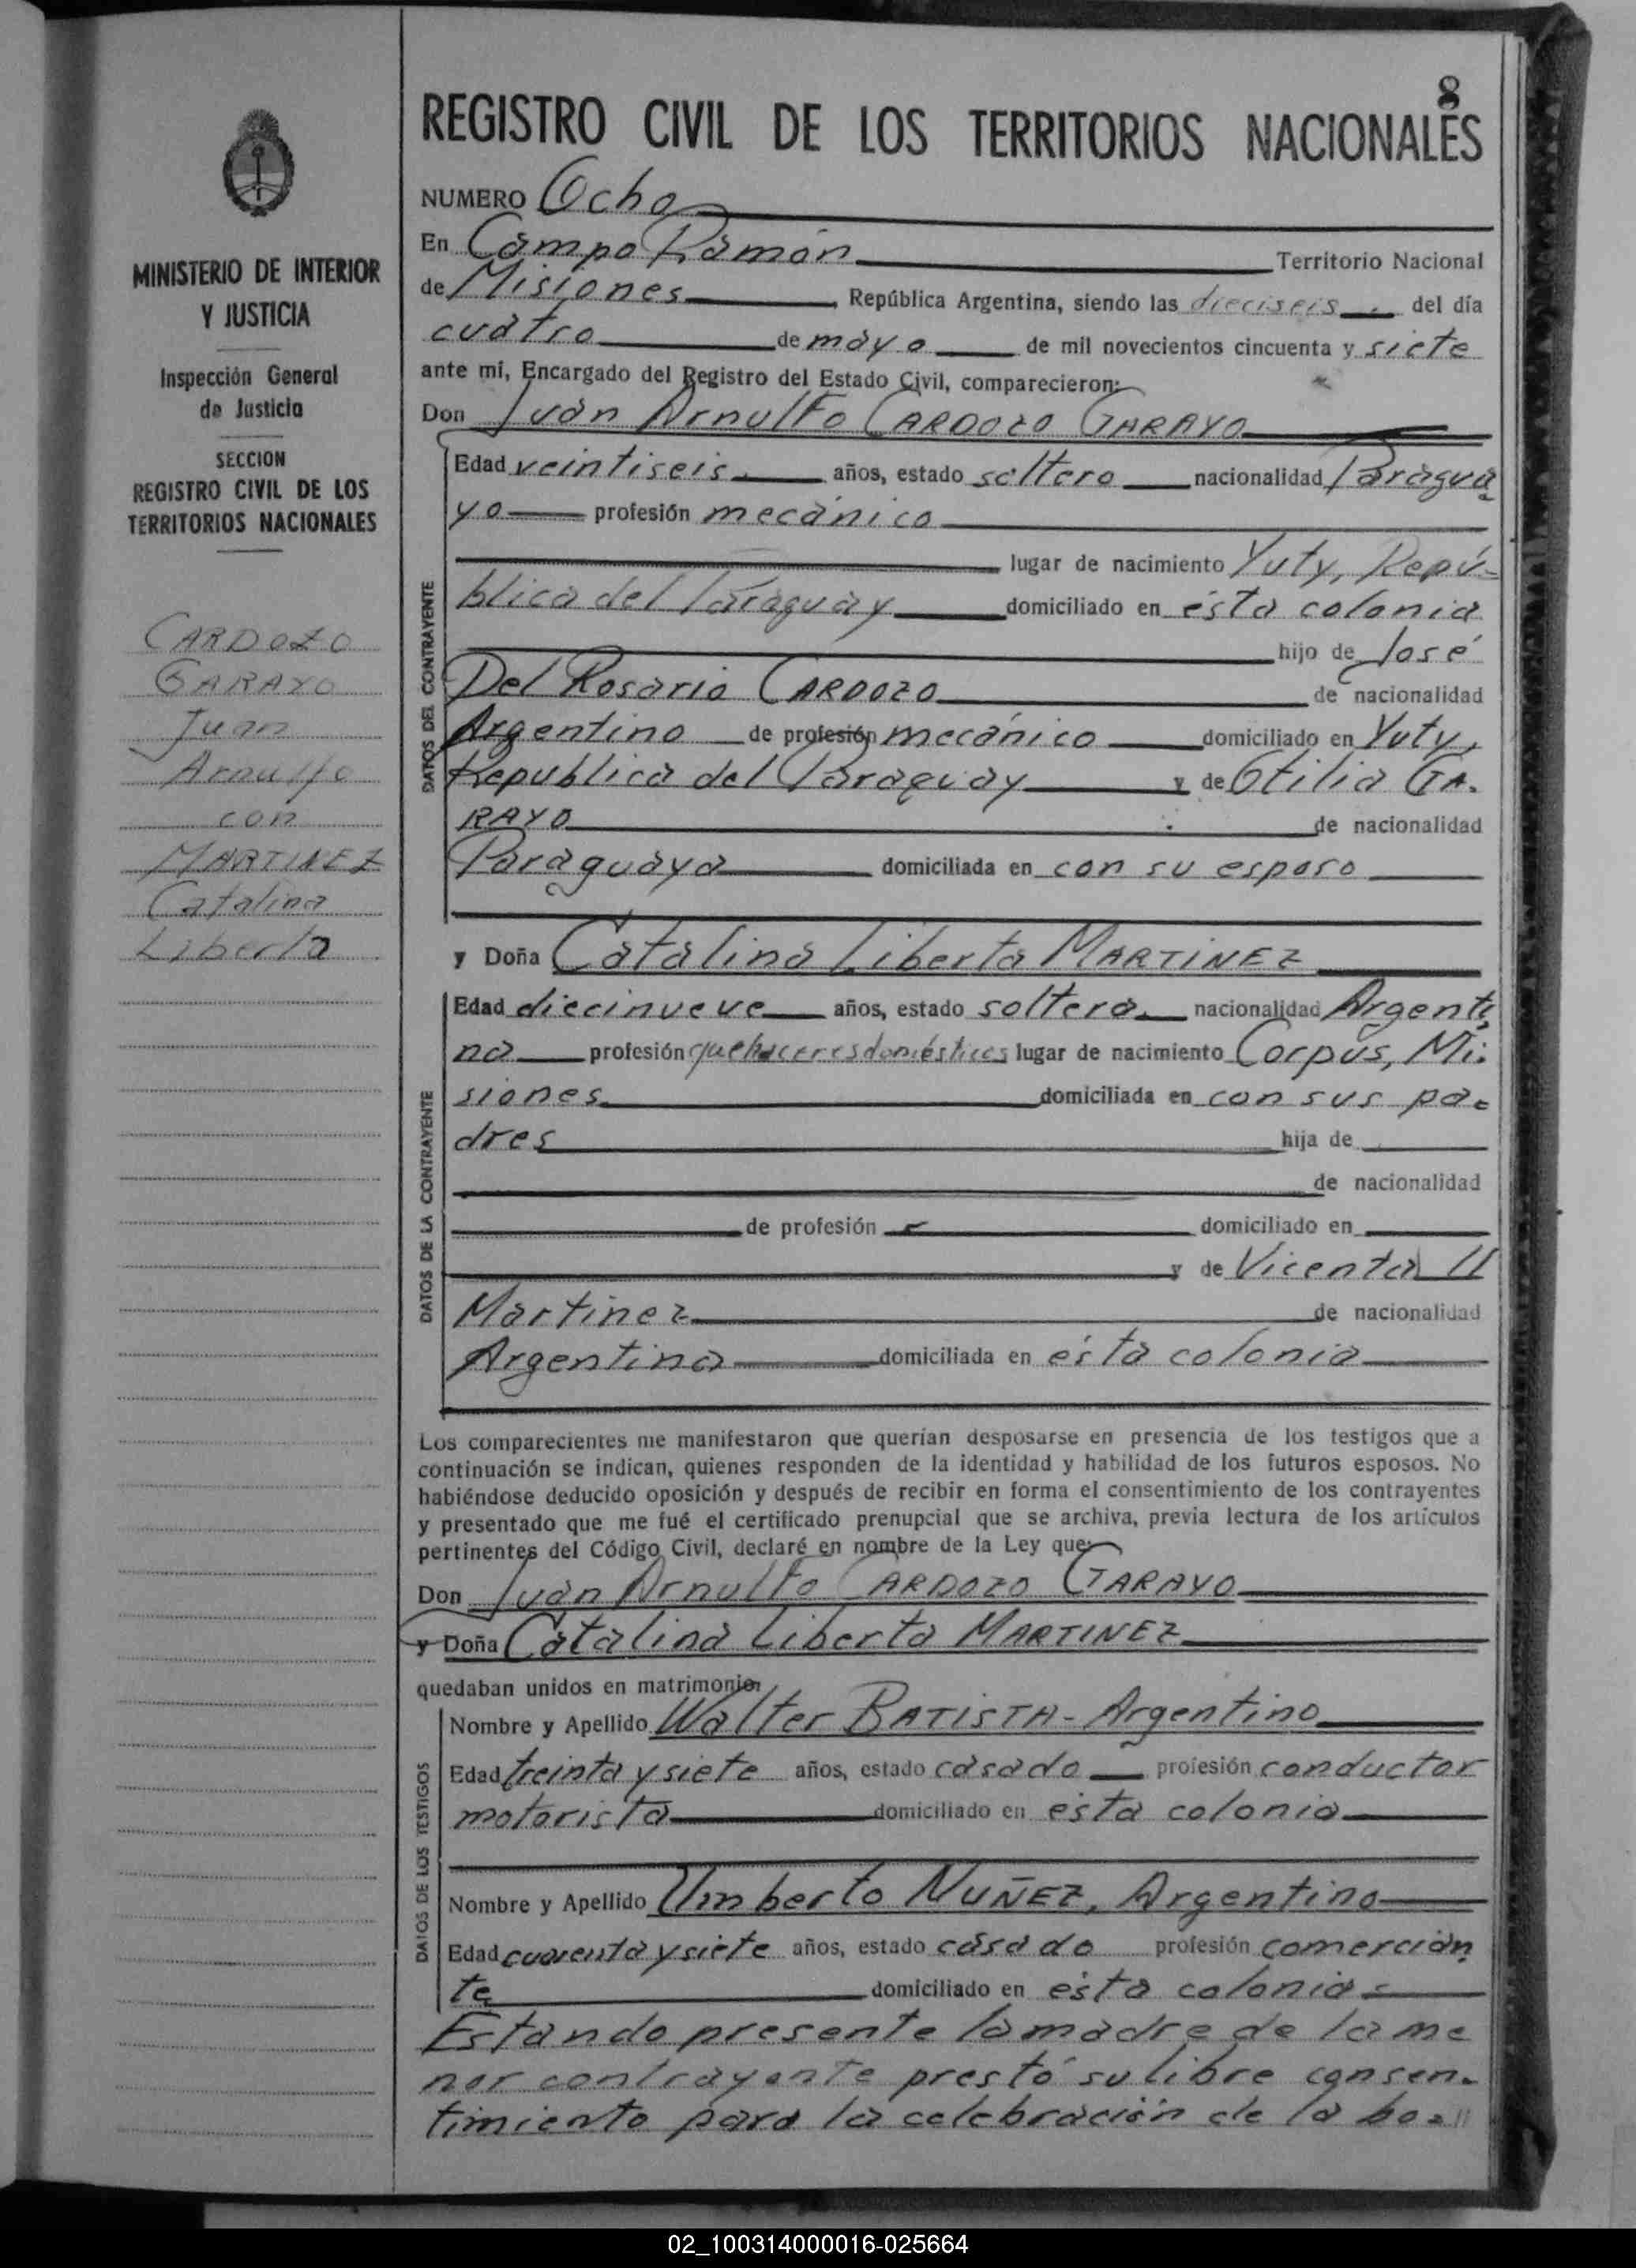 8
REGISTRO CIVIL DE LOS TERRITORIOS NACIONALES
MINISTERIO DE INTERIOR
Y JUSTICIA
Inspección General
de Justicia
SECCION
REGISTRO CIVIL DE LOS
TERRITORIOS NACIONALES
CARDOZO
GARAYO
Juan
Arnulfo
con
MARTINEZ
Catalina
Liberta
NUMERO Ocho
En Campo Ramón Territorio Nacional
de Misiones, República Argentina, siendo las dieciseis del día
cuatro de mayo de mil novecientos cincuenta y siete
ante mí, Encargado del Registro del Estado Civil, comparecieron:
Don Juan Arnulfo CARDOZO GARAYO
DATOS DEL CONTRAYENTE
Edad veintiseis años, estado soltero nacionalidad Paragua
yo profesión mecánico
lugar de nacimiento Yuty, Repú-
blica del Paraguay domiciliado en ésta colonia
hijo de José
Del Rosario CARDOZO de nacionalidad
Argentino de profesión mecánico domiciliado en Yuty,
Republica del Paraguay y de Otilia GA-
RAYO de nacionalidad
Paraguaya domiciliada en con su esposo
y Doña Catalina Liberta MARTINEZ
DATOS DE LA CONTRAYENTE
Edad diecinueve años, estado soltera nacionalidad Argenti
na profesión quehaceres domésticos lugar de nacimiento Corpus, Mi-
siones domiciliada en con sus pa-
dres hija de
de nacionalidad
de profesión domiciliado en
y de Vicenta
Martinez de nacionalidad
Argentina domiciliada en ésta colonia
Los comparecientes me manifestaron que querían desposarse en presencia de los testigos que a
continuación se indican, quienes responden de la identidad y habilidad de los futuros esposos. No
habiéndose deducido oposición y después de recibir en forma el consentimiento de los contrayentes
y presentado que me fué el certificado prenupcial que se archiva, previa lectura de los artículos
pertinentes del Código Civil, declaré en nombre de la Ley que:
Don Juan Arnulfo CARDOZO GARAYO
y Doña Catalina Liberta MARTINEZ
quedaban unidos en matrimonio
DATOS DE LOS TESTIGOS
Nombre y Apellido Walter BATISTA - Argentino
Edad treinta y siete años, estado casado profesión conductor
motorista domiciliado en ésta colonia
Nombre y Apellido Umberto NUÑEZ, Argentino
Edad cuarenta y siete años, estado casado profesión comercian
te domiciliado en ésta colonia
Estando presente la madre de la me
nor contrayente prestó su libre consen-
timiento para la celebración de la bo-
02_100314000016-025664